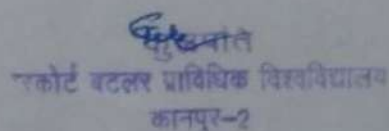 कुलपति
हरकोर्ट बटलर प्राविधिक विश्वविद्यालय
कानपुर-2